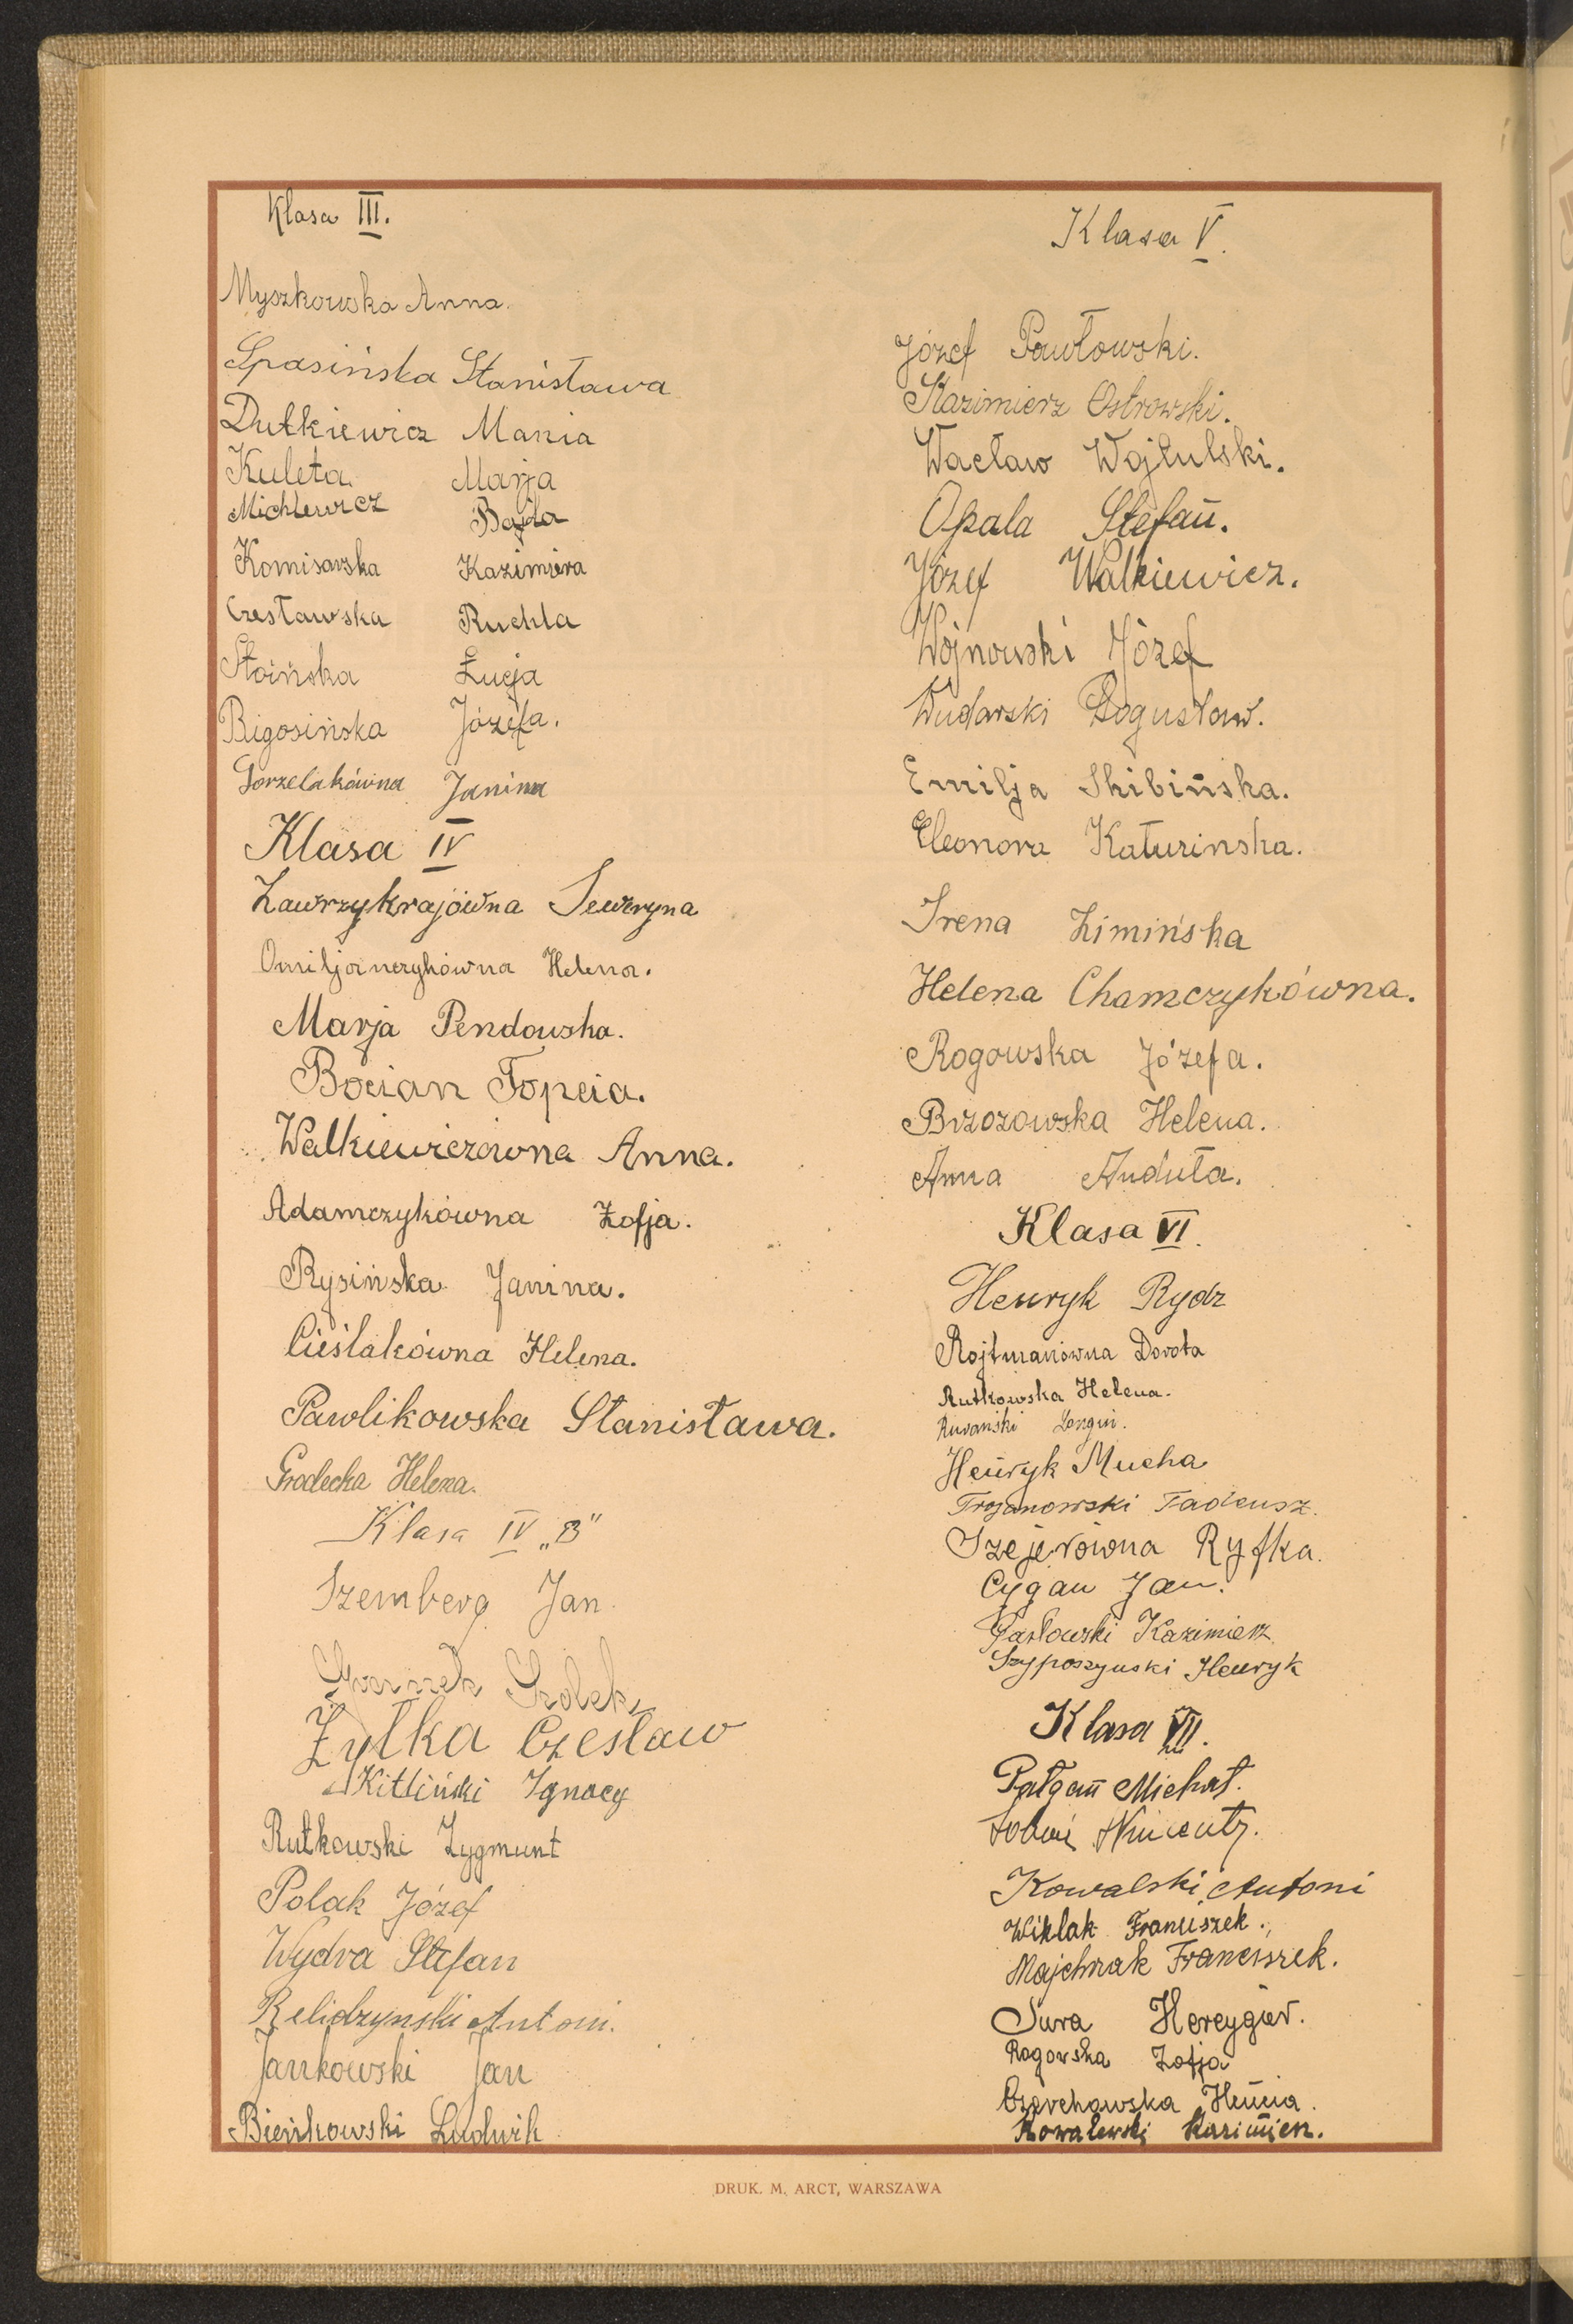 Klasa III.
Myszkowska Anna.
Spasińska Stanisława
Dutkiewicz Mania
Kuleta Marja
Michlewicz Bajla
Komisarska Kazimiera
Czesławska Ruchla
Stoińska Łucja
Bigosińska Józefa.
Gorzelakówna Janina
Klasa IV
Zawrzykrajówna Seweryna
Omiljanczykówna Helena.
Marja Pendowska.
Bocian Fopcia.
Walkiewiczówna Anna.
Adamczykówna Zofja.
Rysińska Janina.
Cieślakówna Helena.
Pawlikowska Stanisława.
Grodecka Helena.
Klasa IV „B”
Szemberg Jan
Żyłka Czesław
Kitliński Ignacy
Rutkowski Zygmunt
Polak Józef
Wydra Stefan
Relidzynski Antoni.
Jankowski Jan
Bieńkowski Ludwik
Klasa V.
Józef Pawłowski.
Kazimierz Ostrowski.
Wacław Wojtulski.
Opala Stefan.
Józef Walkiewicz.
Wójnowski Józef
Wudarski Bogusław.
Emilja Skibińska.
Eleonora Katurinska.
Irena Zimińska
Helena Chamczykówna.
Rogowska Józefa.
Brzozowska Helena.
Anna Anduła.
Klasa VI.
Henryk Rydz
Rojtmanówna Dorota
Rutkowska Helena.
Longin.
Henryk Mucha
Trojanowski Tadeusz.
Szejerówna Ryfka.
Cygan Jan.
Kazimierz
Szyposzynski Henryk
Klasa VII.
Pałgan Michał.
Wincenty.
Kowalski Antoni
Wiklak Franciszek.
Majchrzak Franciszek.
Sura Hercygier.
Rogowska Zofja
Czerchowska Henia.
Kowalewski Kazimierz.
DRUK. M. ARCT, WARSZAWA